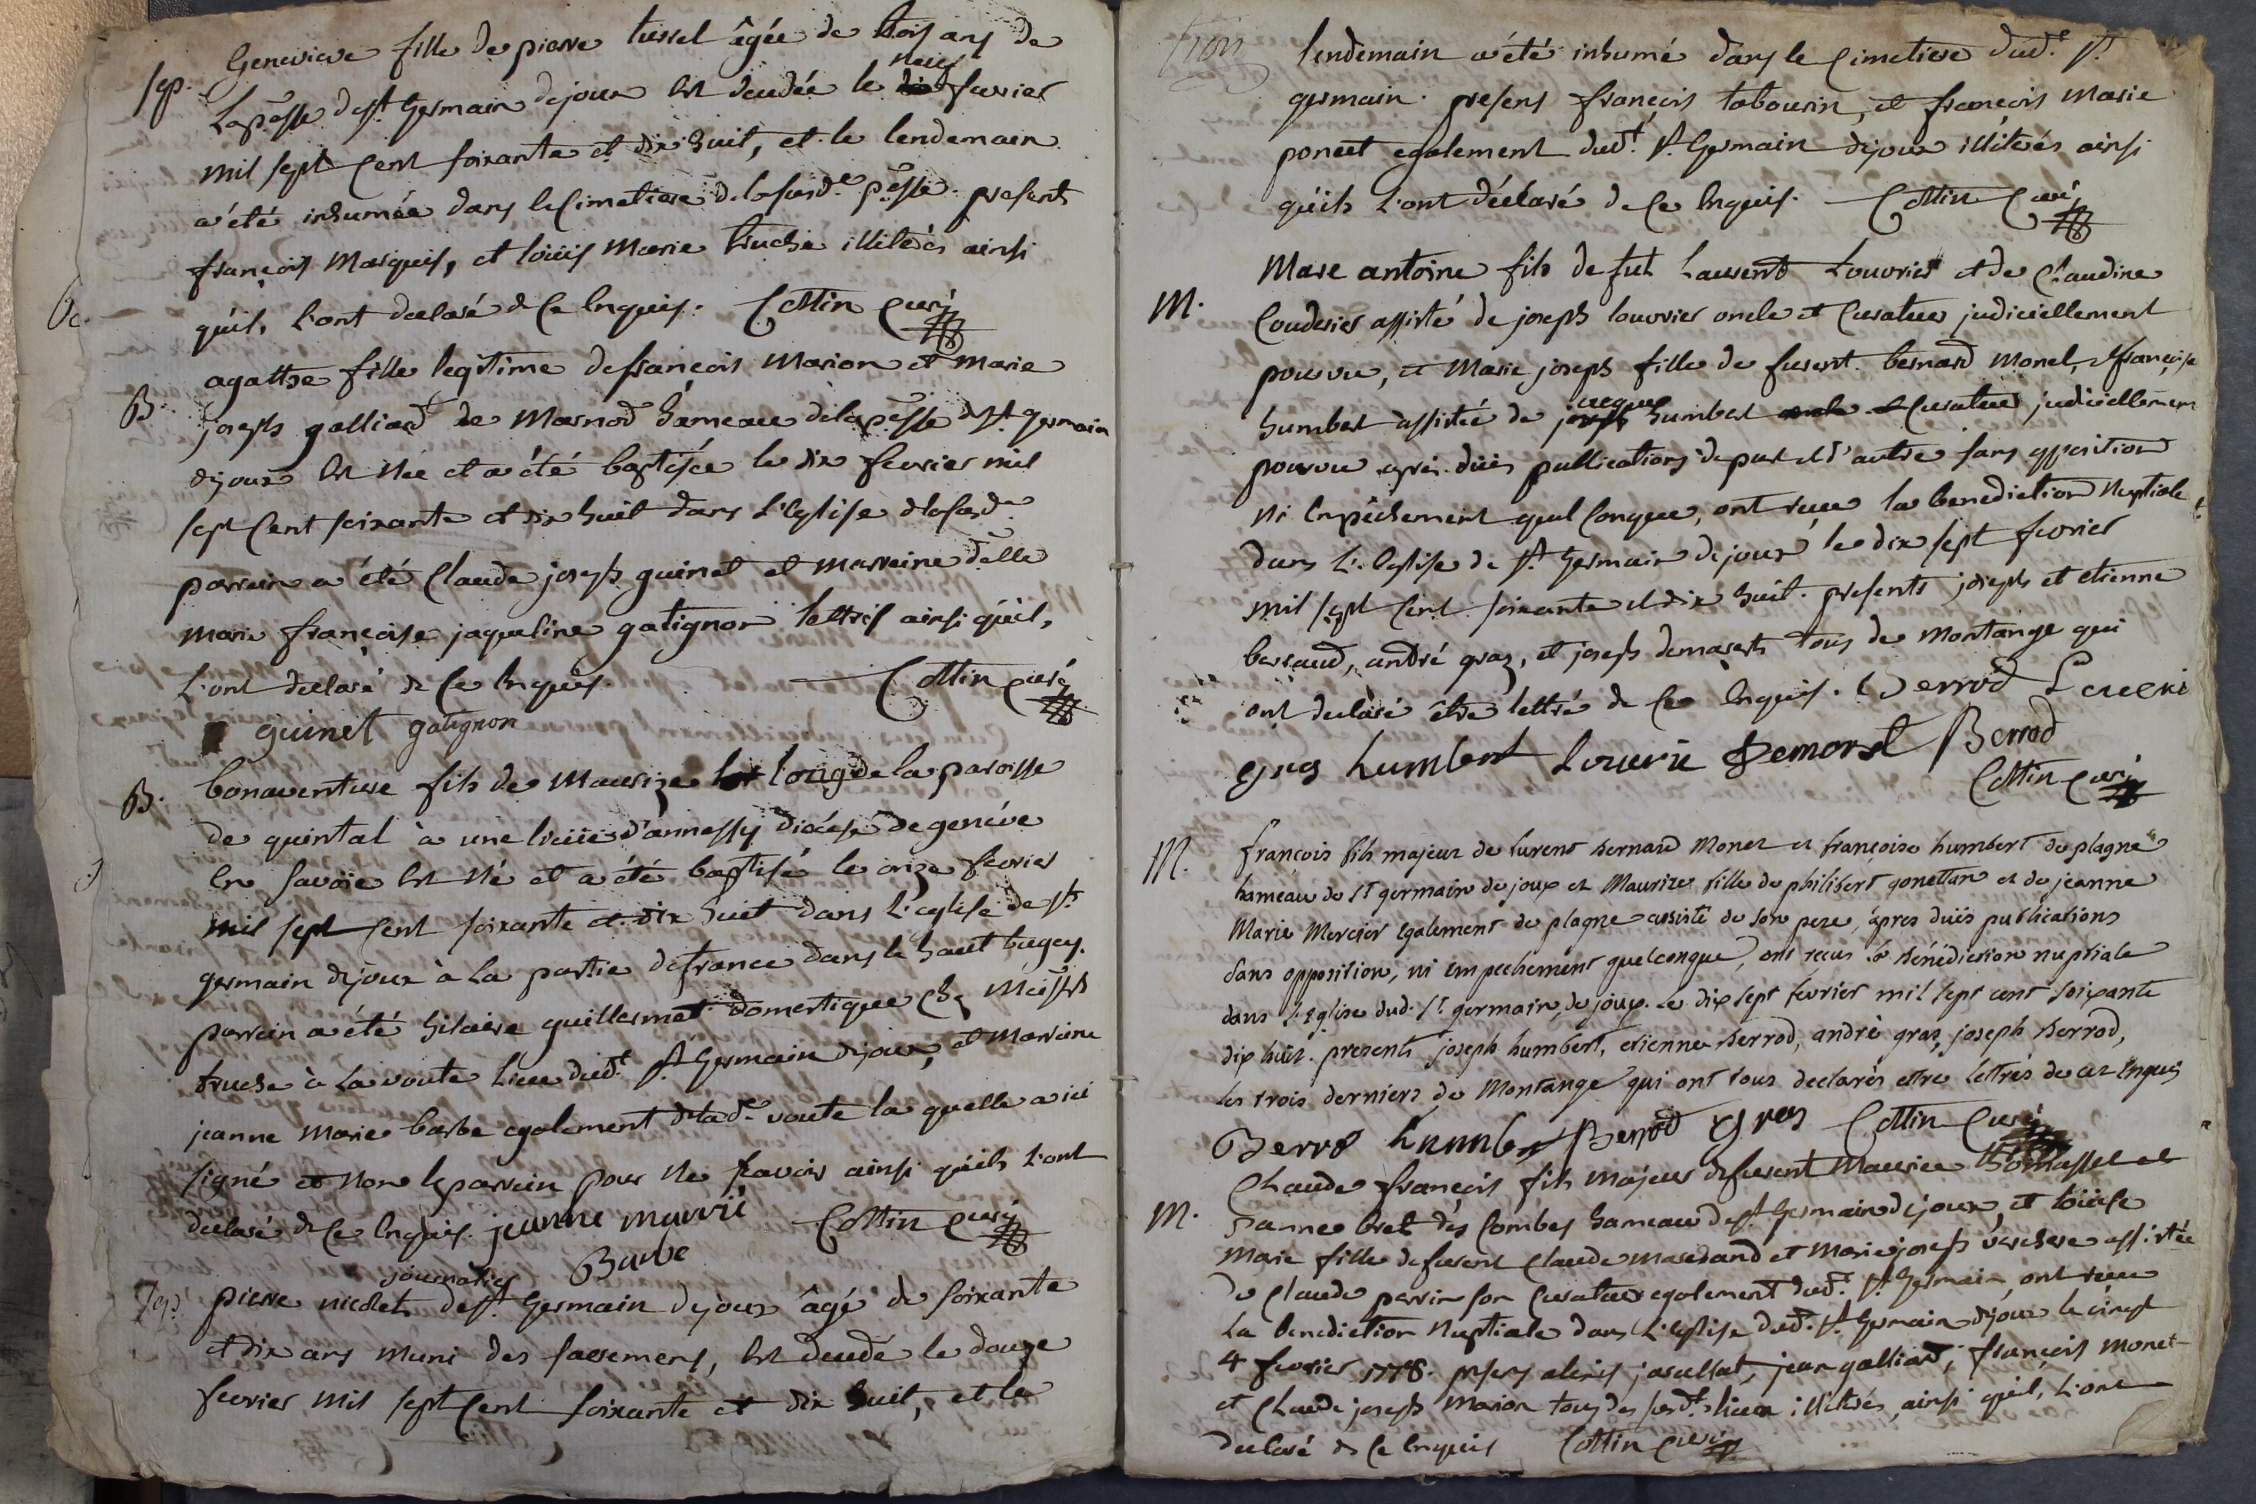 Genevieve fille de pierre tissel âgée de trois ans de
sep. La p.esse de st. Germain dejoux est décédée le neuf fevrier
mil sept cent soixante et dix huit, et le lendemain
a été inhumée dans le cimetiere de la susd.e p.esse presents
françois Marquis, et loüis Marie truche illiterés ainsi
qu'ils l'ont déclaré de ce enquis. Cottin curé
B. agathe fille legitime de françois Marion et Marie
joseph galliard de Marnod hameau de la p.esse de st. germain
dejoux est née et a été baptisée le dix fevrier mil
sept cent soixante et dix huit dans l'eglise de la susd.e
parrain a été claude joseph guinet et marraine d'elle
marie françoise jaqueline gatignon lettrés ainsi qu'ils
l'ont declaré de ce enquis. Cottin curé
guinet gatignon
B. bonaventure fils de Maurize long de la paroisse
de quintal à une lieüe d'annessy diocese de genéve
en savoïe est né et a été baptisé le onze fevrier
mil sept cent soixante et dix huit dans l'eglise de st.
germain dejoux à la partie de france dans le haut bugey.
parrain a été hilaire guillermet domestique chez
truche à la voute lieu dud.t st. Germain dejoux, et marraine
jeanne marie barbe egalement de lad.e voute la quelle a ici
signé et non le parrain pour ne sçavoir ainsi qu'ils l'ont
declaré de ce enquis. jeanne marie Cottin curé
Barbe
journalier
Sep. pierre nicolet de st. Germain dejoux âgé de soixante
et dix ans muni des sacremens, est décédé le douze
fevrier mil sept cent soixante et dix huit, et le
lendemain a été inhumé dans le cimetiere dud.t st.
germain. presens françois tabourin, et françois Marie
poncet egalement dud.t st. Germain dejoux illiterés ainsi
qu'ils l'ont déclaré de ce enquis. Cottin curé
Marc antoine fils de fut Laurent Louvrier et de Claudine
M. Couderier assisté de joseph louvrier oncle et curateur judiciellement
pourvu, et Marie joseph fille de furent bernard Monet, et françoise
humbert assistée de jacques humbert curateur judiciellement
pourvue après düës publications de part et d'autre sans opposition
ni empêchement quel conque, ont reçue la benediction nuptiale
dans l'eglise de st. Germain dejoux le dix sept fevrier
mil sept cent soixante et dix huit. presents joseph et etienne
berraud, andré graz, et joseph demarest tous de montange qui
ont declaré être lettré de ce enquis. Berrod
gras humbert Louvrie Demorest Berrod
Cottin curé
M. françois fils majeur de furent Bernard Monet et françoise humbert de plagne
hameau de st germain de joux et Maurize fille de philibert gonettan et de jeanne
Marie Mercier egalement de plagne assisté de son pere, après düës publications
sans opposition, ni empechement quelconque, ont recus la bénédiction nuptiale
dans l'eglise dud. st. germain de joux. Le dix sept fevrier mil sept cent soixante
dix huit. presents joseph humbert, etienne Berrod, andré gras, joseph Berrod,
Les trois derniers de Montange qui ont tous declarés etre lettrés de ce enquis
Berrod humbert Berrod gras Cottin curé
Claude françois fils majeur de furent Maurice thomasset et
M. jeanne bret des combes hameau de st. Germain dejoux, et loüise
Marie fille de furent claude marchand et Marie joseph verchere assistée
de claude perrin son curateur egalement dud.t st. Germain, ont reçue
La benediction nuptiale dans l'eglise dud. st. Germain dejoux le vingt
4 fevrier 1778. presens alexis jacullat, jean galliard, françois monet
et Claude joseph Marion tous des susd.t lieux illiterés, ainsi qu'ils l'ont
declaré de ce enquis Cottin curé